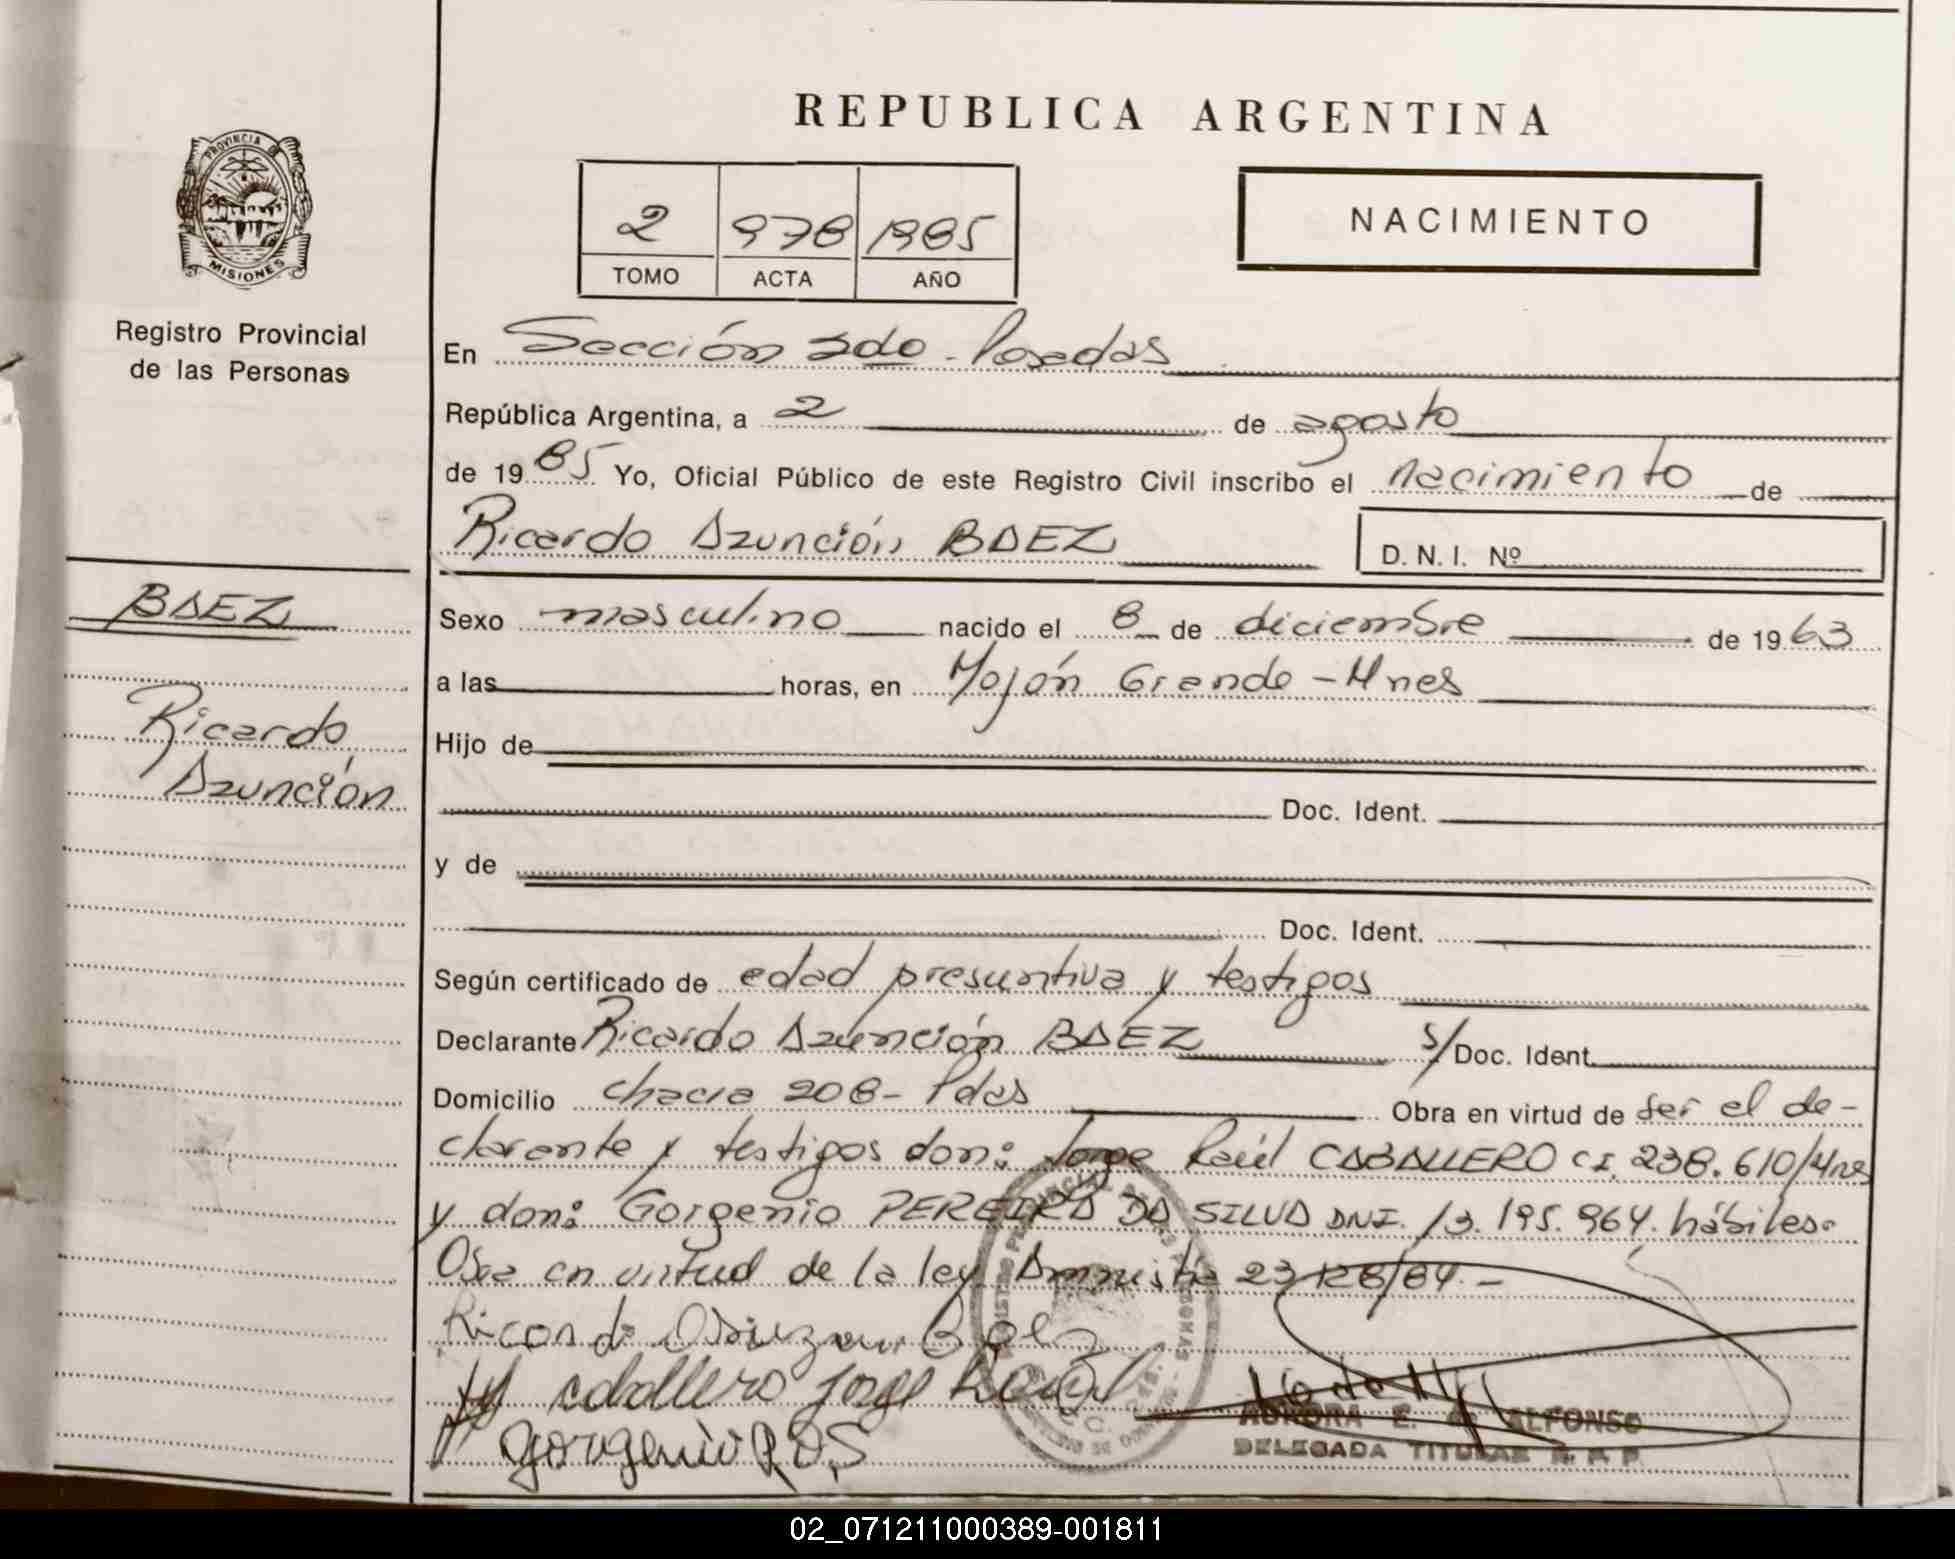 REPUBLICA ARGENTINA
PROVINCIA DE
MISIONES
Registro Provincial
de las Personas
2 978 1985
TOMO ACTA AÑO
NACIMIENTO
En Sección 2do - Posadas
República Argentina, a 2 de agosto
de 1985 Yo, Oficial Público de este Registro Civil inscribo el nacimiento de
Ricardo Azunción BAEZ D. N. I. Nº
BAEZ
Ricardo
Azunción
Sexo masculino nacido el 8 de diciembre de 1963
a las horas, en Mojón Grande - Mnes
Hijo de
Doc. Ident.
y de
Doc. Ident.
Según certificado de edad presuntiva y testigos
Declarante Ricardo Azunción BAEZ S/Doc. Ident.
Domicilio chacra 208 - Pdas Obra en virtud de ser el de-
clarante y testigos don: Jorge Raúl CABALLERO C.I. 238.610/Mnes
y don: Gorgenio PEREIRA DA SILVA DNI. 13.195.964. hábiles.
Obra en virtud de la ley Amnistia 23128/84. -
Ricardo
caballero Jorge Raúl
gorgenio P. D. S
AURORA E. ALFONSO
DELEGADA TITULAR R. P. P
02_071211000389-001811